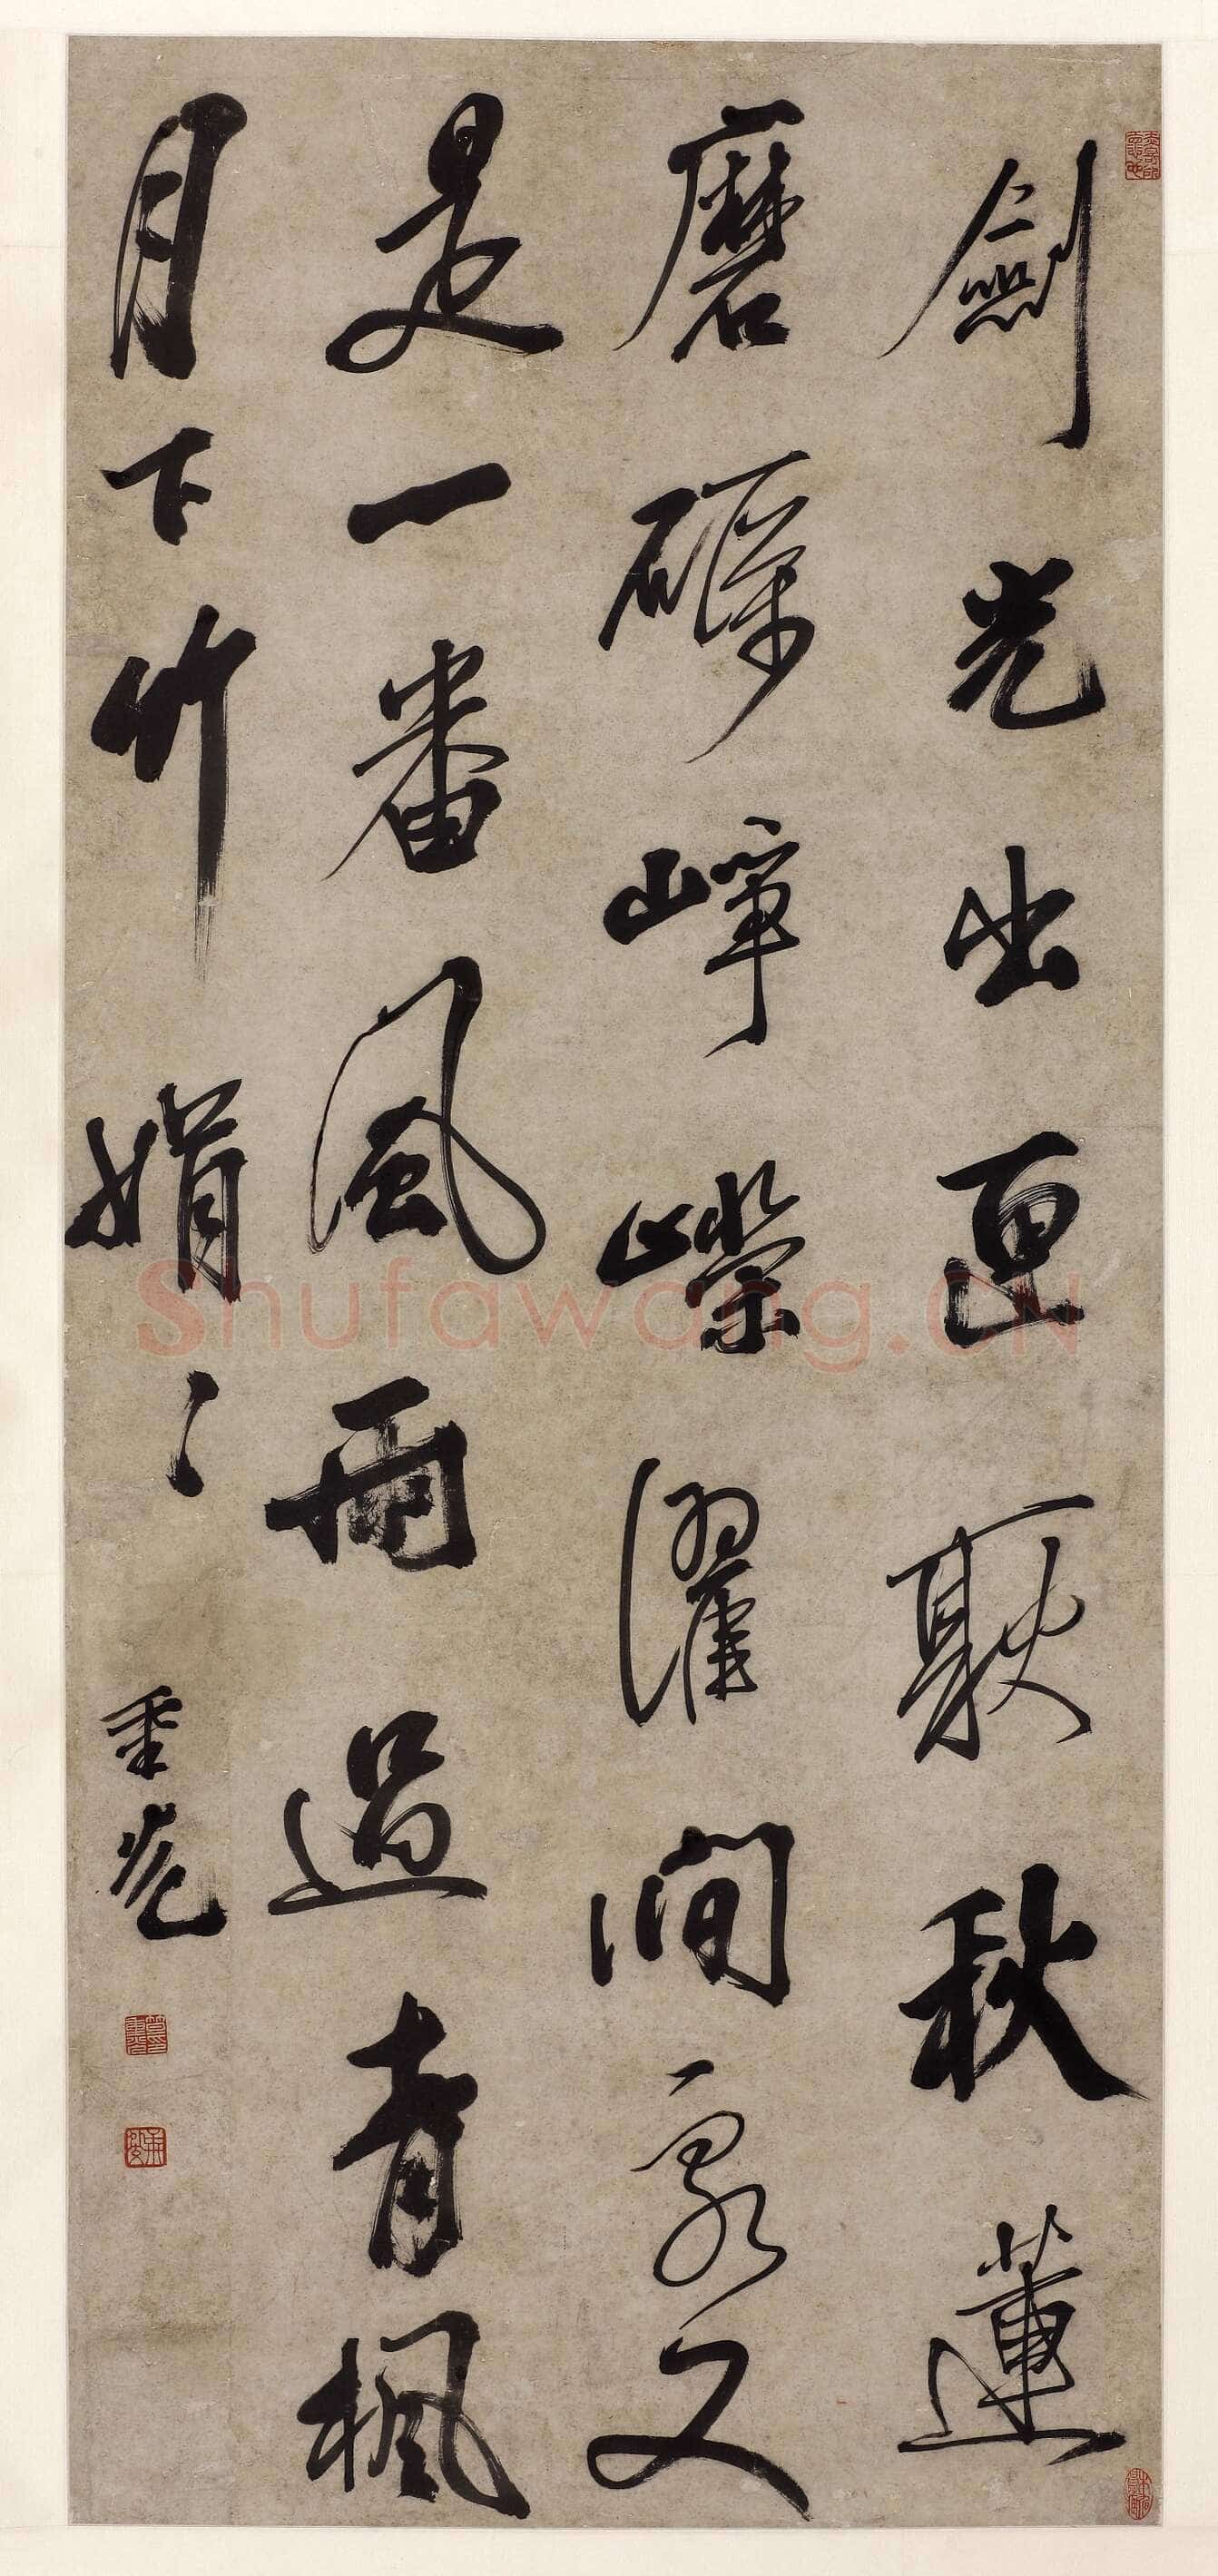 劍光出匣歇秋蓮
磨礪崢嶸濯澗泉又
是一番風雨過青楓
月下竹娟〻
重光
Shufawang.CN